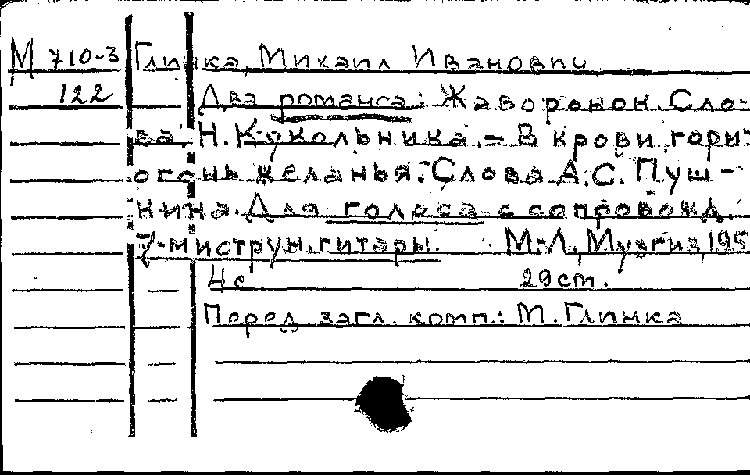 М 710-3 Глинка, Михаил Иванович
122 Два романса: Жаворонок. Сло-
ва Н. Кукольника. – В крови горит
огонь желанья. Слова А.С. Пуш-
кина. Для голоса с сопровожд.
7-миструн. гитары. М.-Л., Музгиз, 195
4с 29см.
Перед загл. комп.: М. Глинка